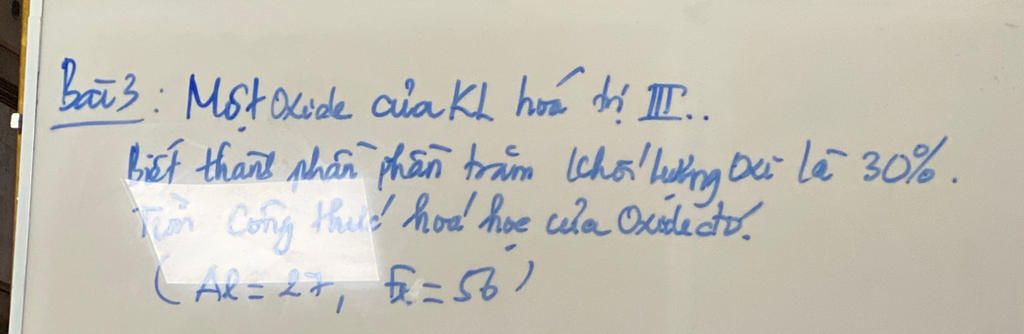 Bài 3: Một Oxide của KL hoá trị III..
Biết thành phần phần trăm khối lượng Oxi là 30%.
Tìm Công thức hoá học của Oxide đó.
(Al = 27, Fe = 56)